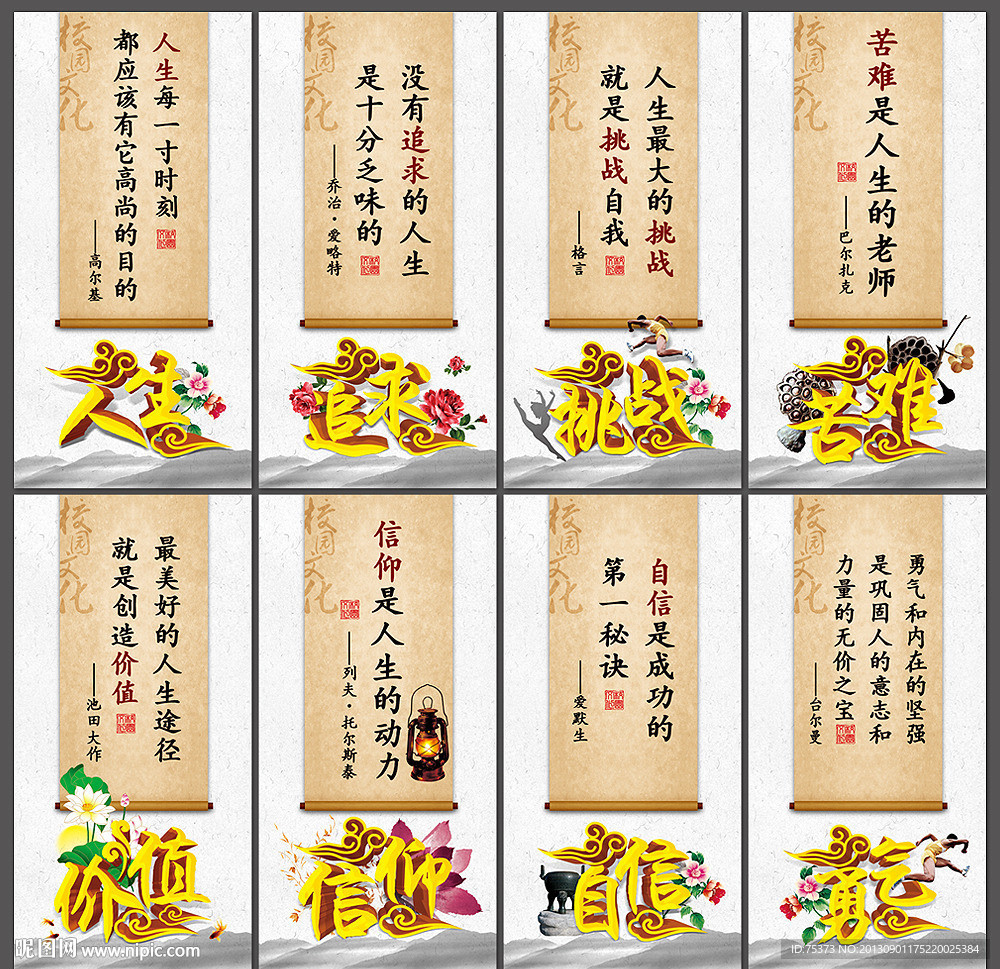 校园文化
人生每一寸时刻
都应该有它高尚的目的
——高尔基
人生
校园文化
没有追求的人生
是十分乏味的
——乔治·爱略特
追求
校园文化
人生最大的挑战
就是挑战自我
——格言
挑战
校园文化
苦难是人生的老师
——巴尔扎克
苦难
校园文化
最美好的人生途径
就是创造价值
——池田大作
价值
校园文化
信仰是人生的动力
——列夫·托尔斯泰
信仰
校园文化
自信是成功的
第一秘诀
——爱默生
自信
校园文化
勇气和内在的坚强
是巩固人的意志和
力量的无价之宝
——台尔曼
勇气
昵图网 www.nipic.com
ID:75373 NO:20130901175220025384